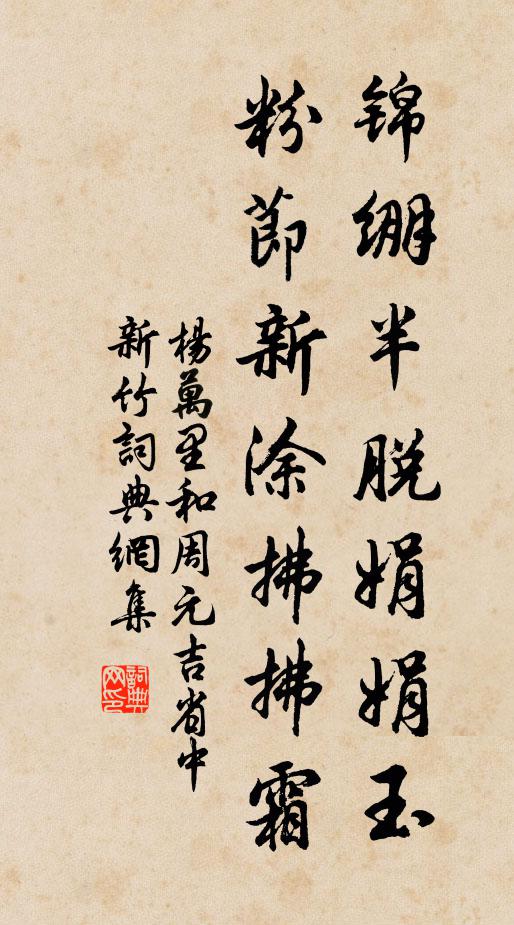 锦绷半脱娟娟玉
粉莭新涂拂拂霜
楊萬里和周元吉省中
新竹詞典網集
詞典
网印